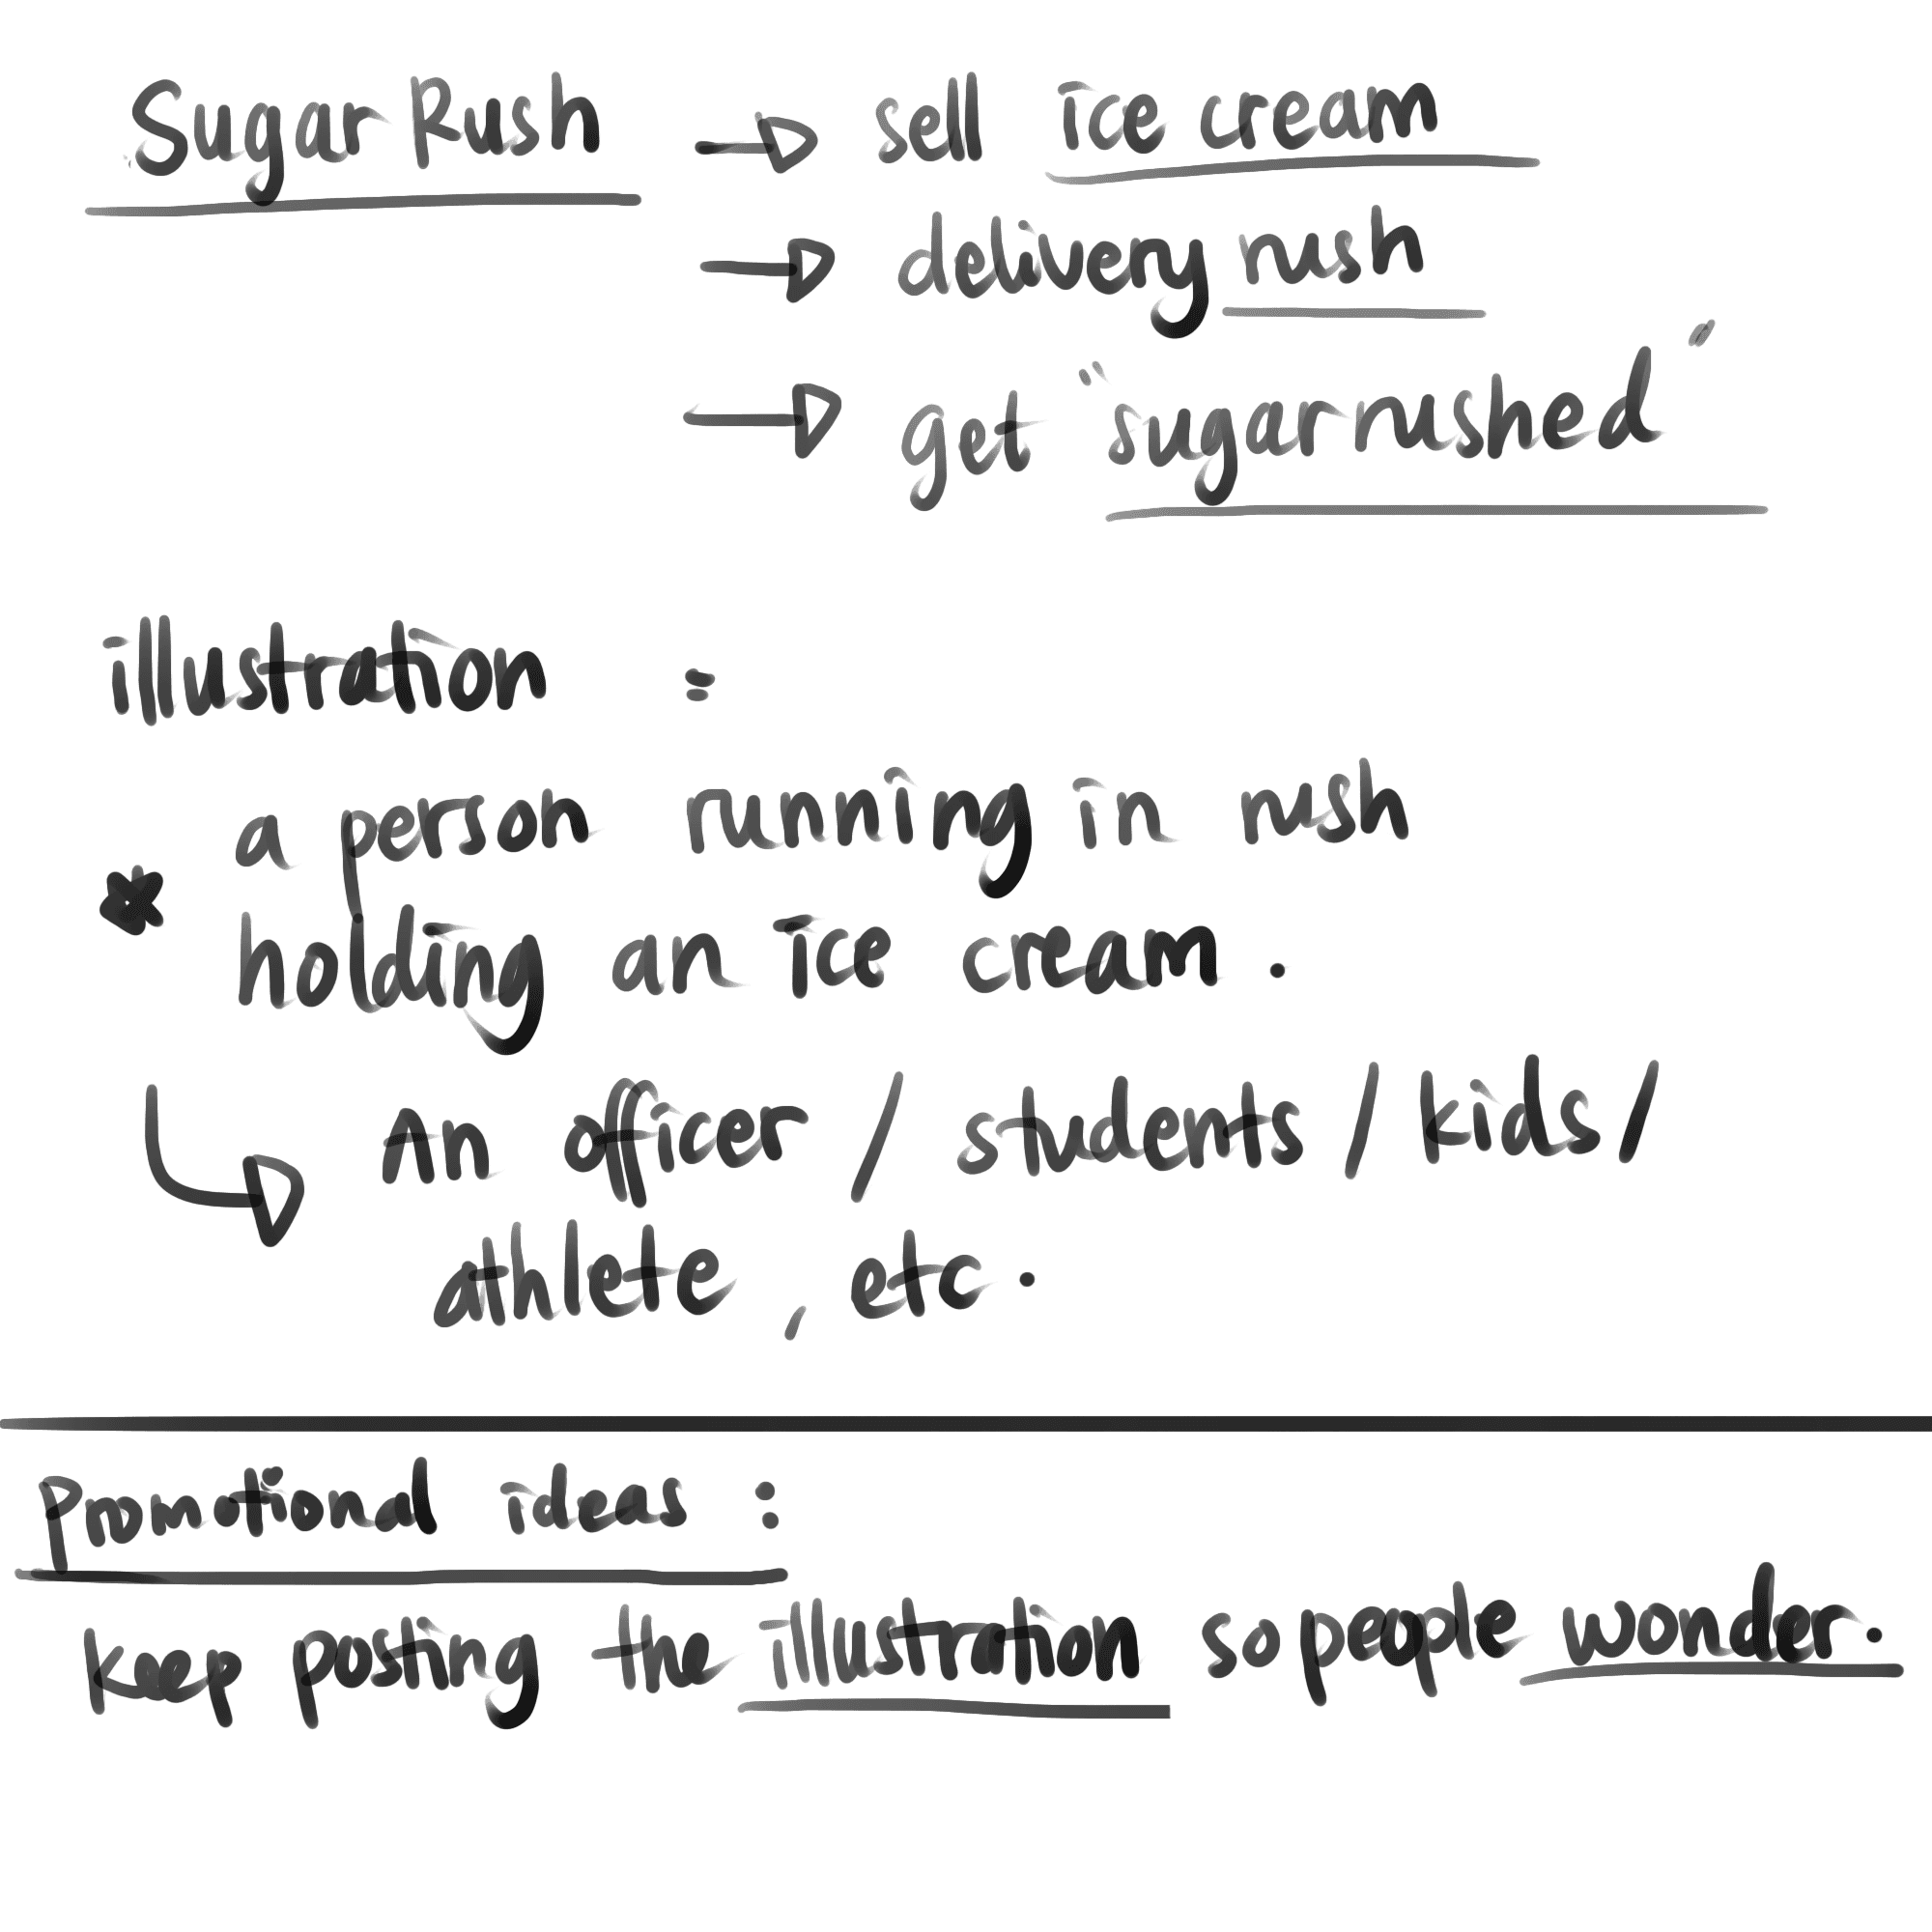 Sugar Rush → sell ice cream
→ delivery rush
→ get "sugarrushed"
illustration =
* a person running in rush
holding an ice cream.
↳ An officer / students / kids /
athlete, etc.
Promotional ideas :
Keep posting the illustration so people wonder.